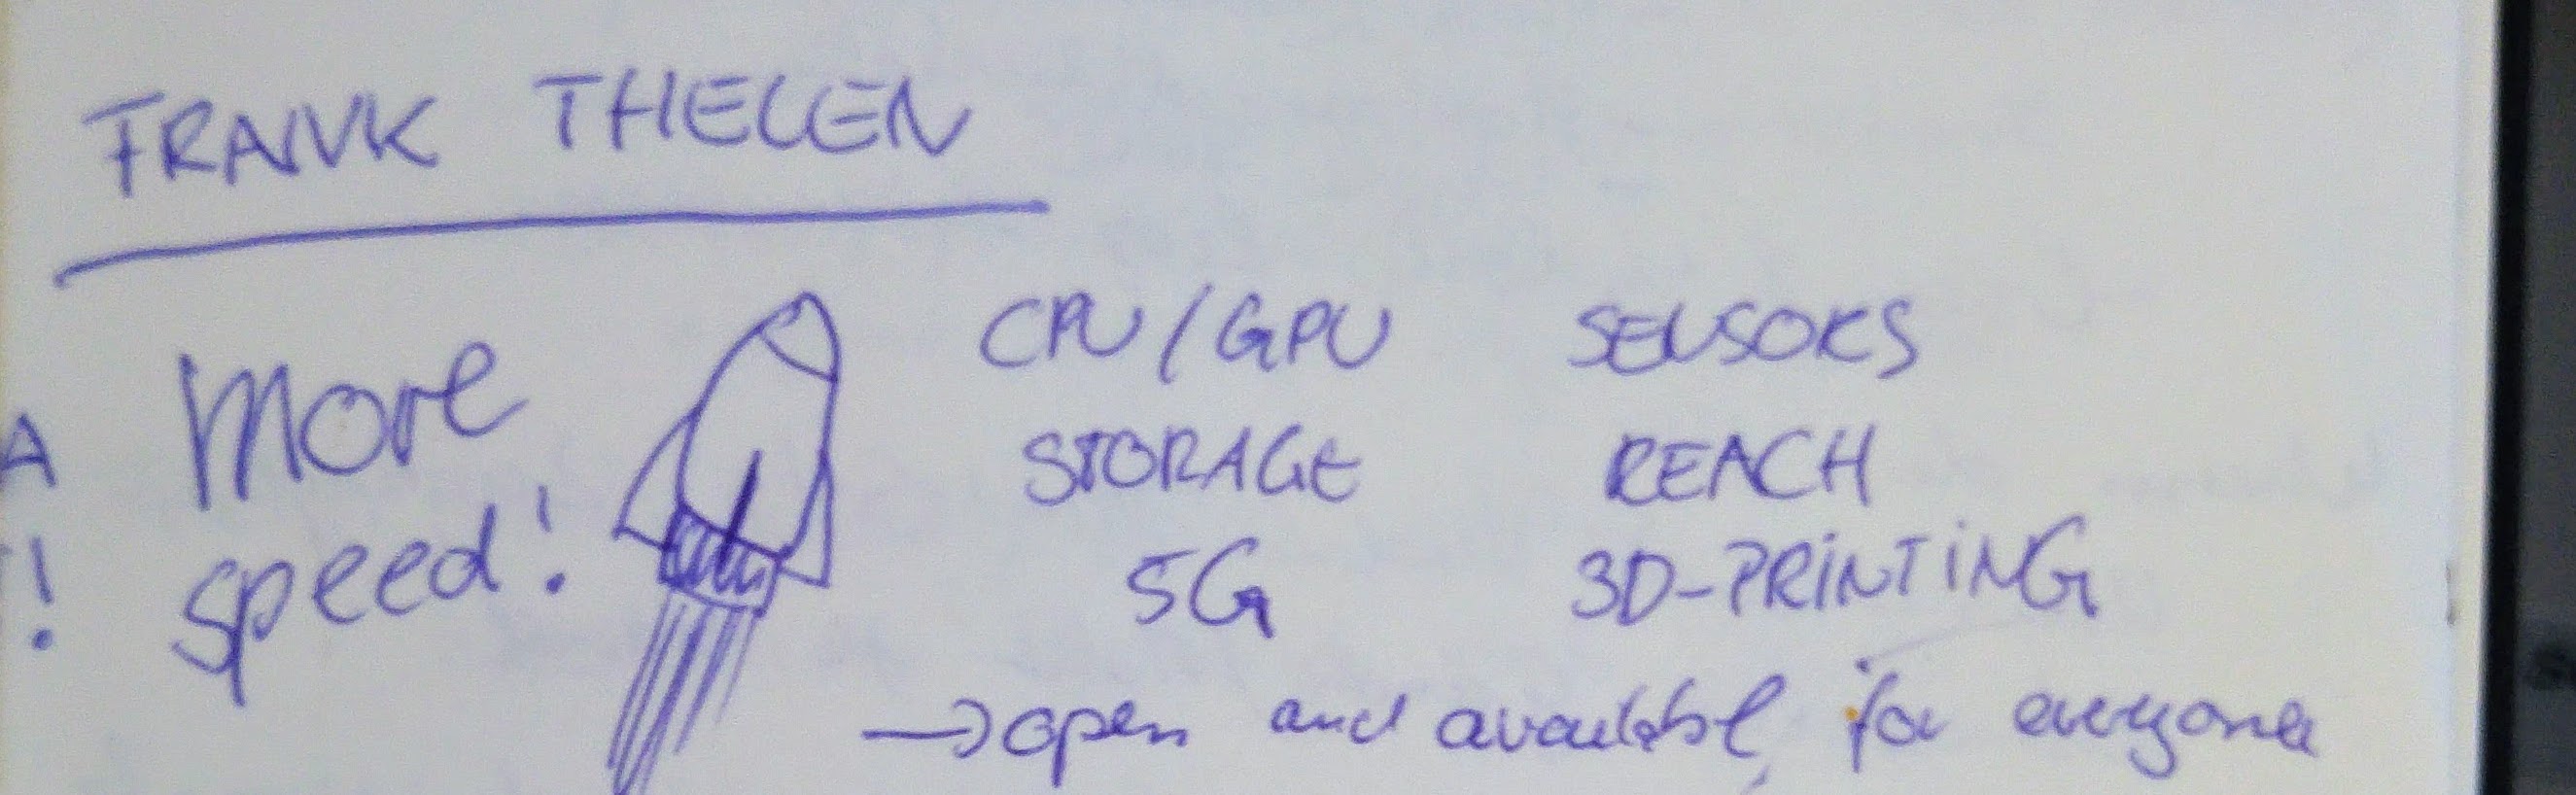 FRANK THELEN
More
speed!
A
!
CPU/GPU SENSORS
STORAGE REACH
5G 3D-PRINTING
→ open and available for everyone